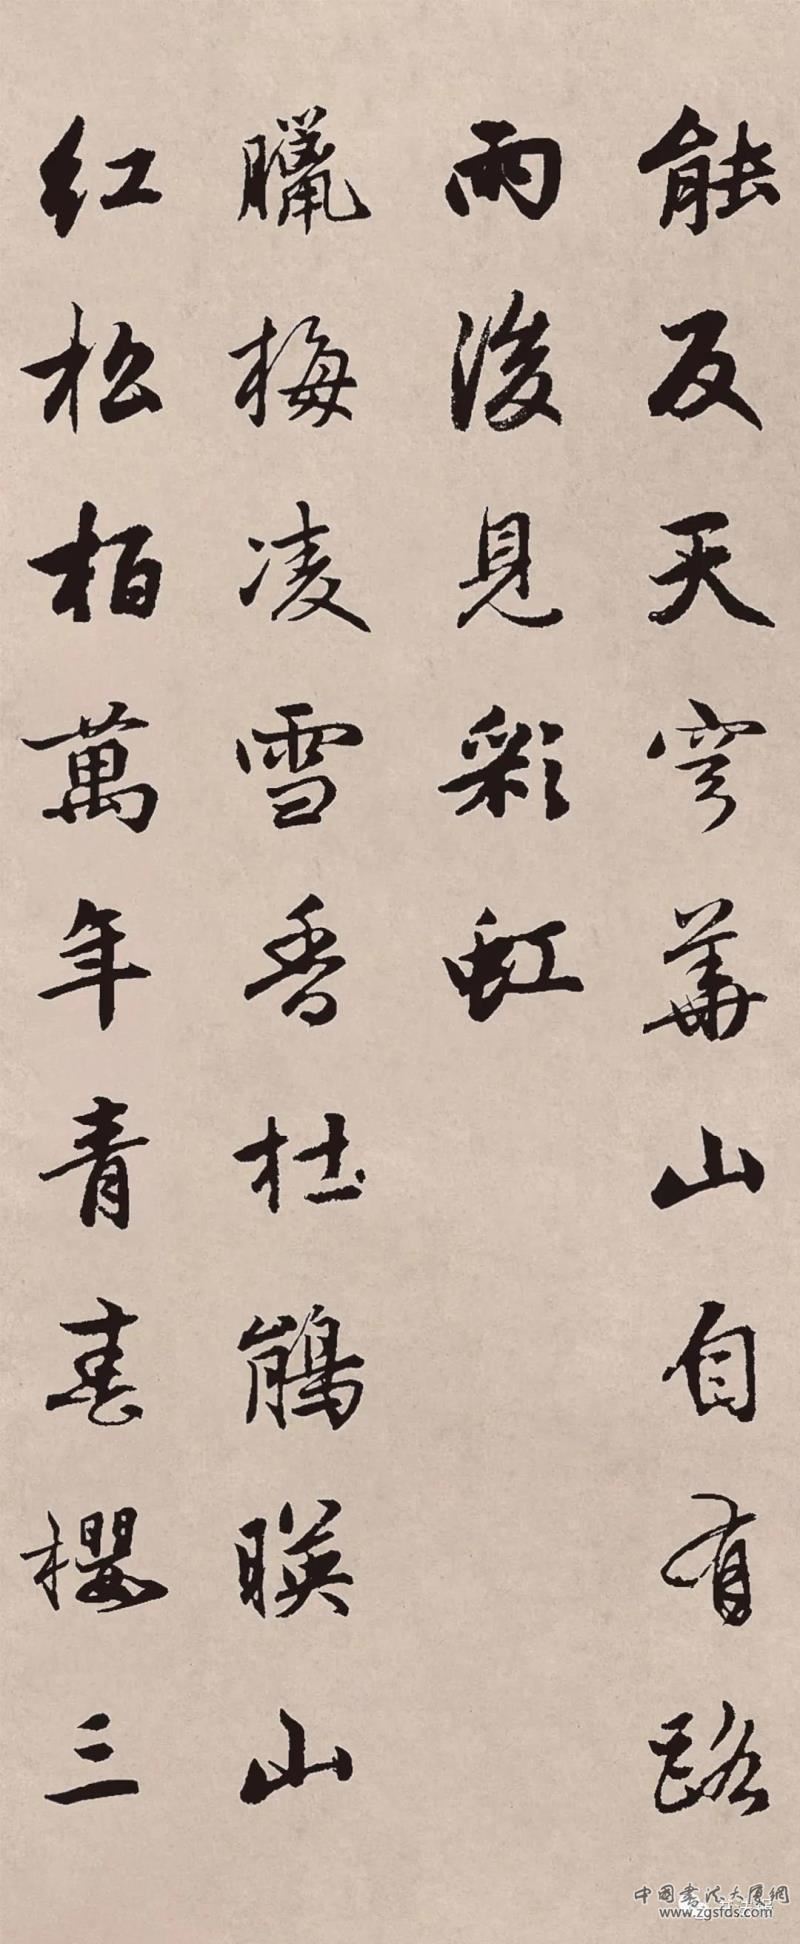 能反天穹華山自有路
雨後見彩虹
臘梅凌雪香杜鵑暎山
红松柏萬年青春櫻三
中國書法大厦網
www.zgsfds.com